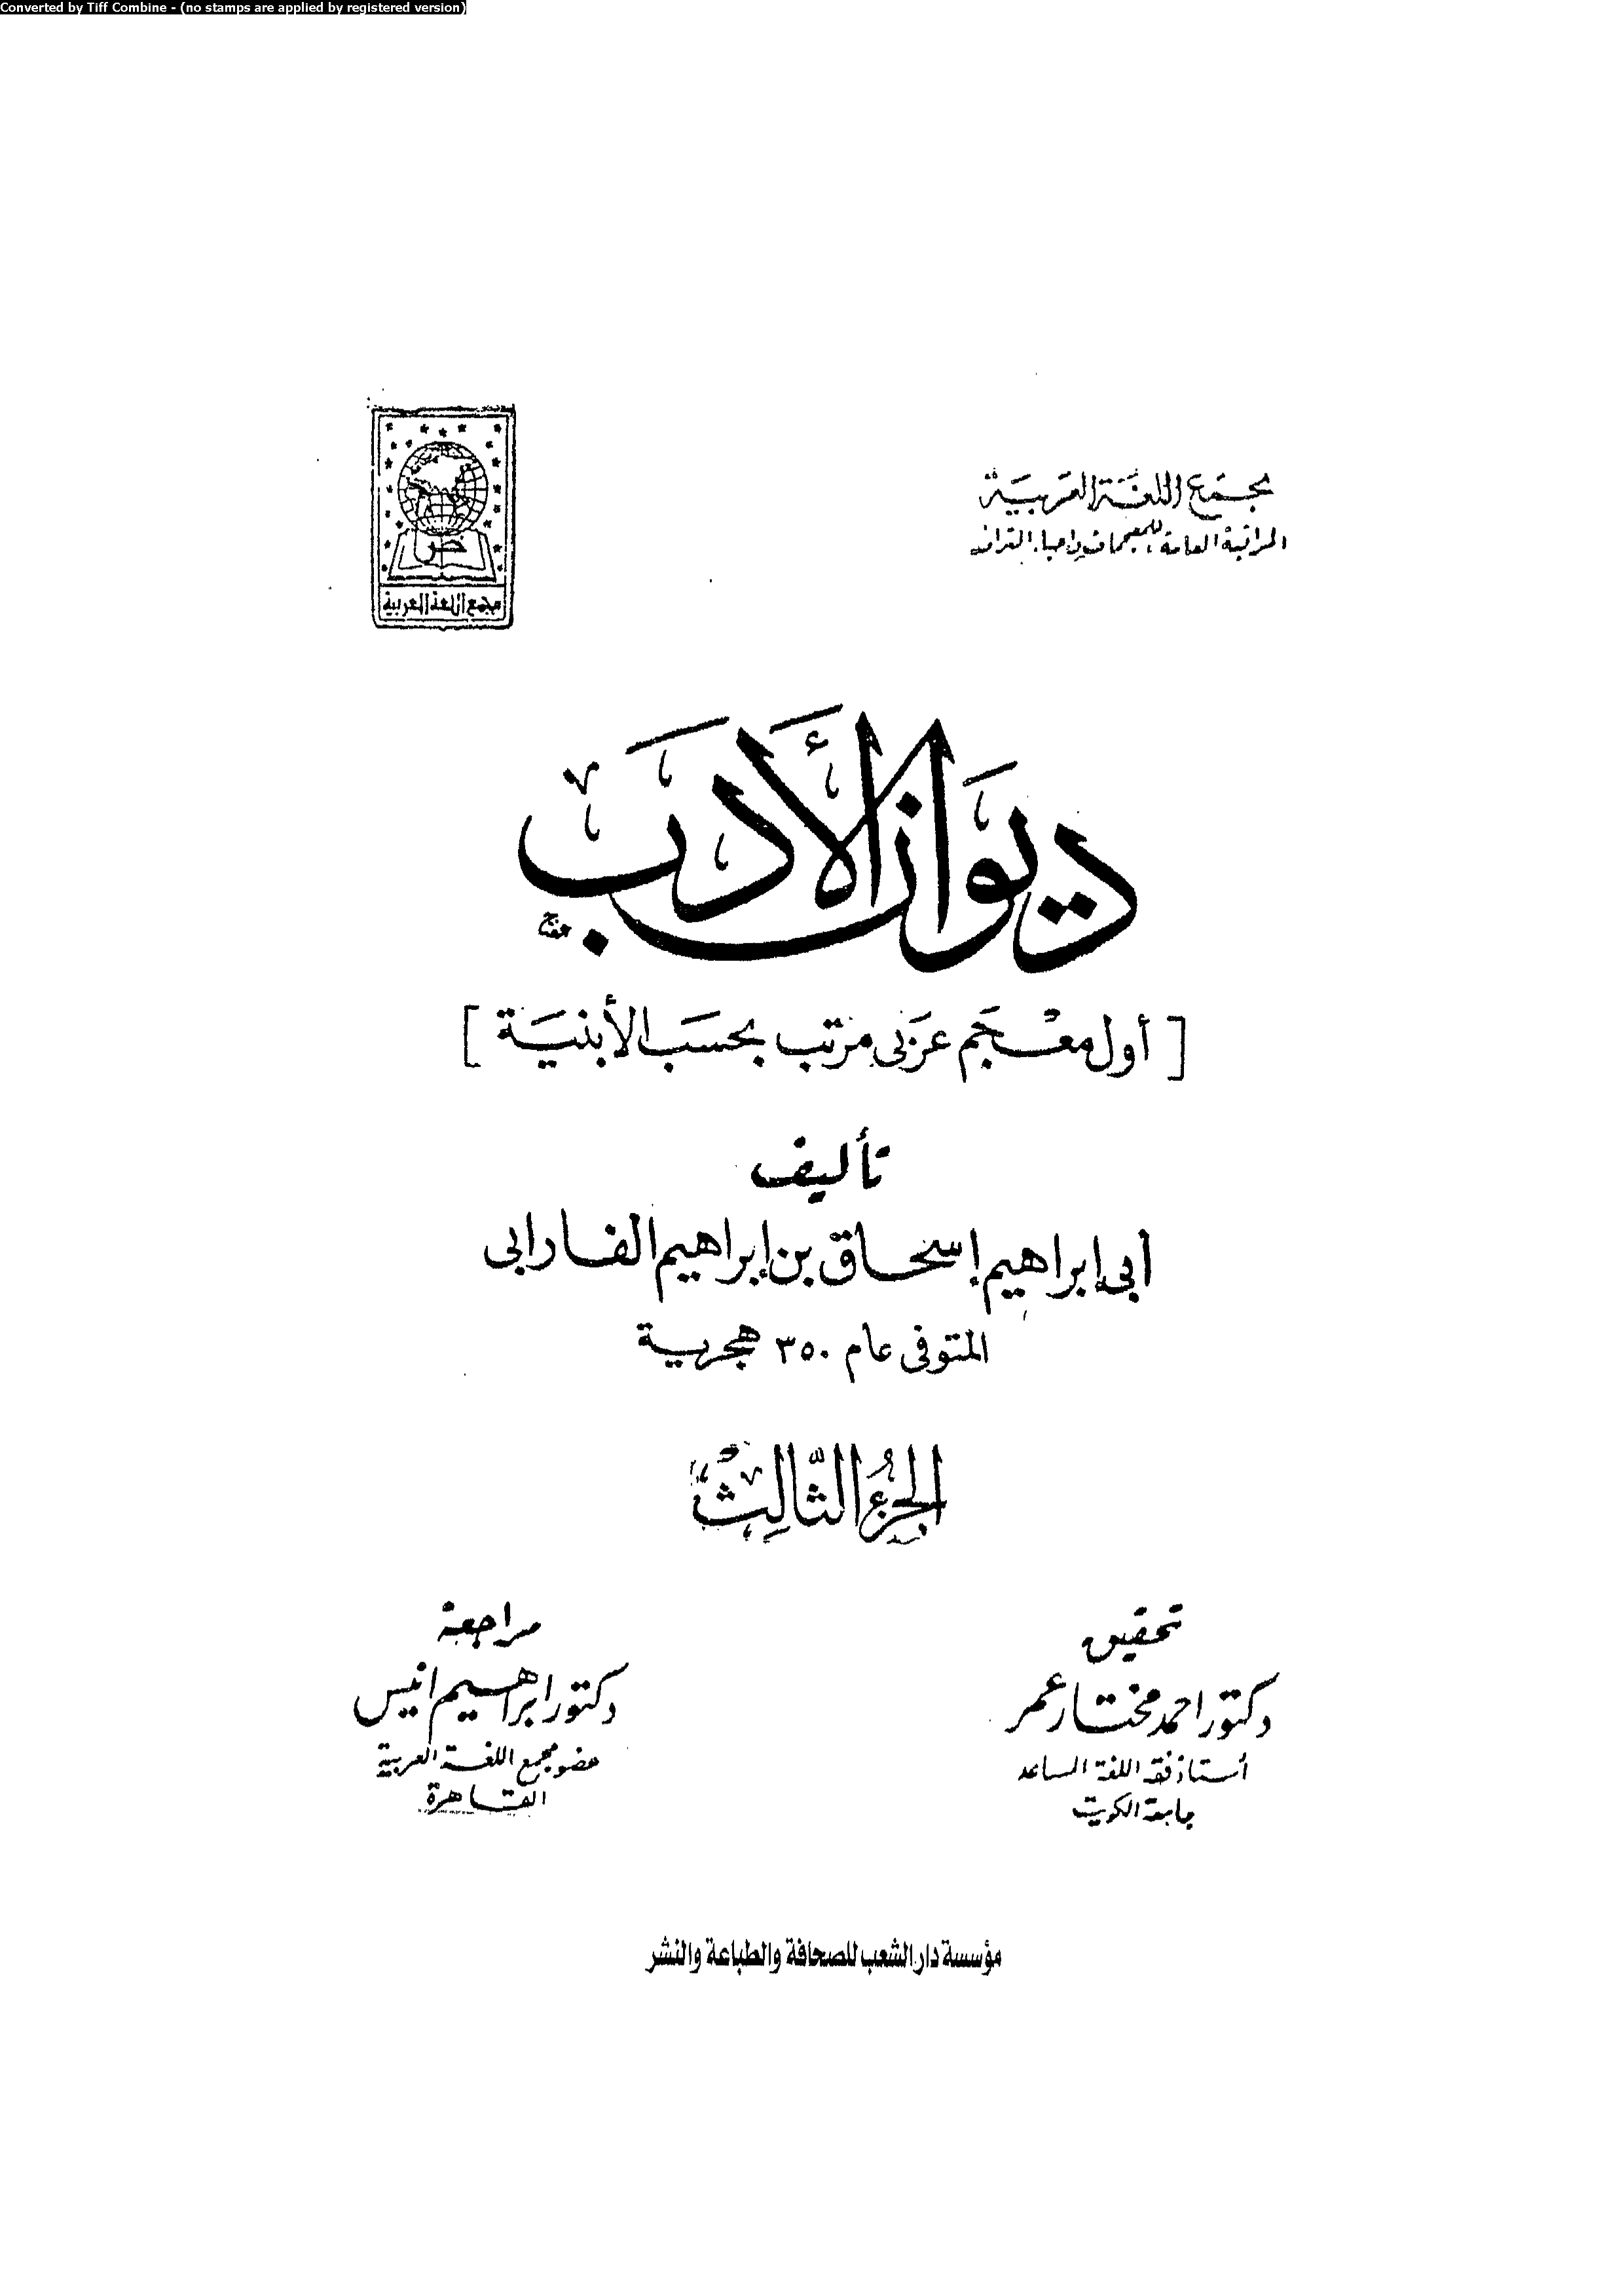 Converted by Tiff Combine - (no stamps are applied by registered version)
مجمع اللغة العربية
المراقبة العامة للمعجمات وإحياء التراث
مجمع اللغة العربية
ديوان الأدب
[ أول معجم عربى مرتب بحسب الأبنية ]
تأليف
أبى إبراهيم إسحاق بن إبراهيم الفارابى
المتوفى عام ٣٥٠ هجرية
الجزء الثالث
تحقيق
دكتور احمد مختار عمر
أستاذ فقه اللغة المساعد
جامعة الكويت
مراجعة
دكتور ابراهيم انيس
عضو مجمع اللغة العربية
القاهرة
مؤسسة دار الشعب للصحافة والطباعة والنشر